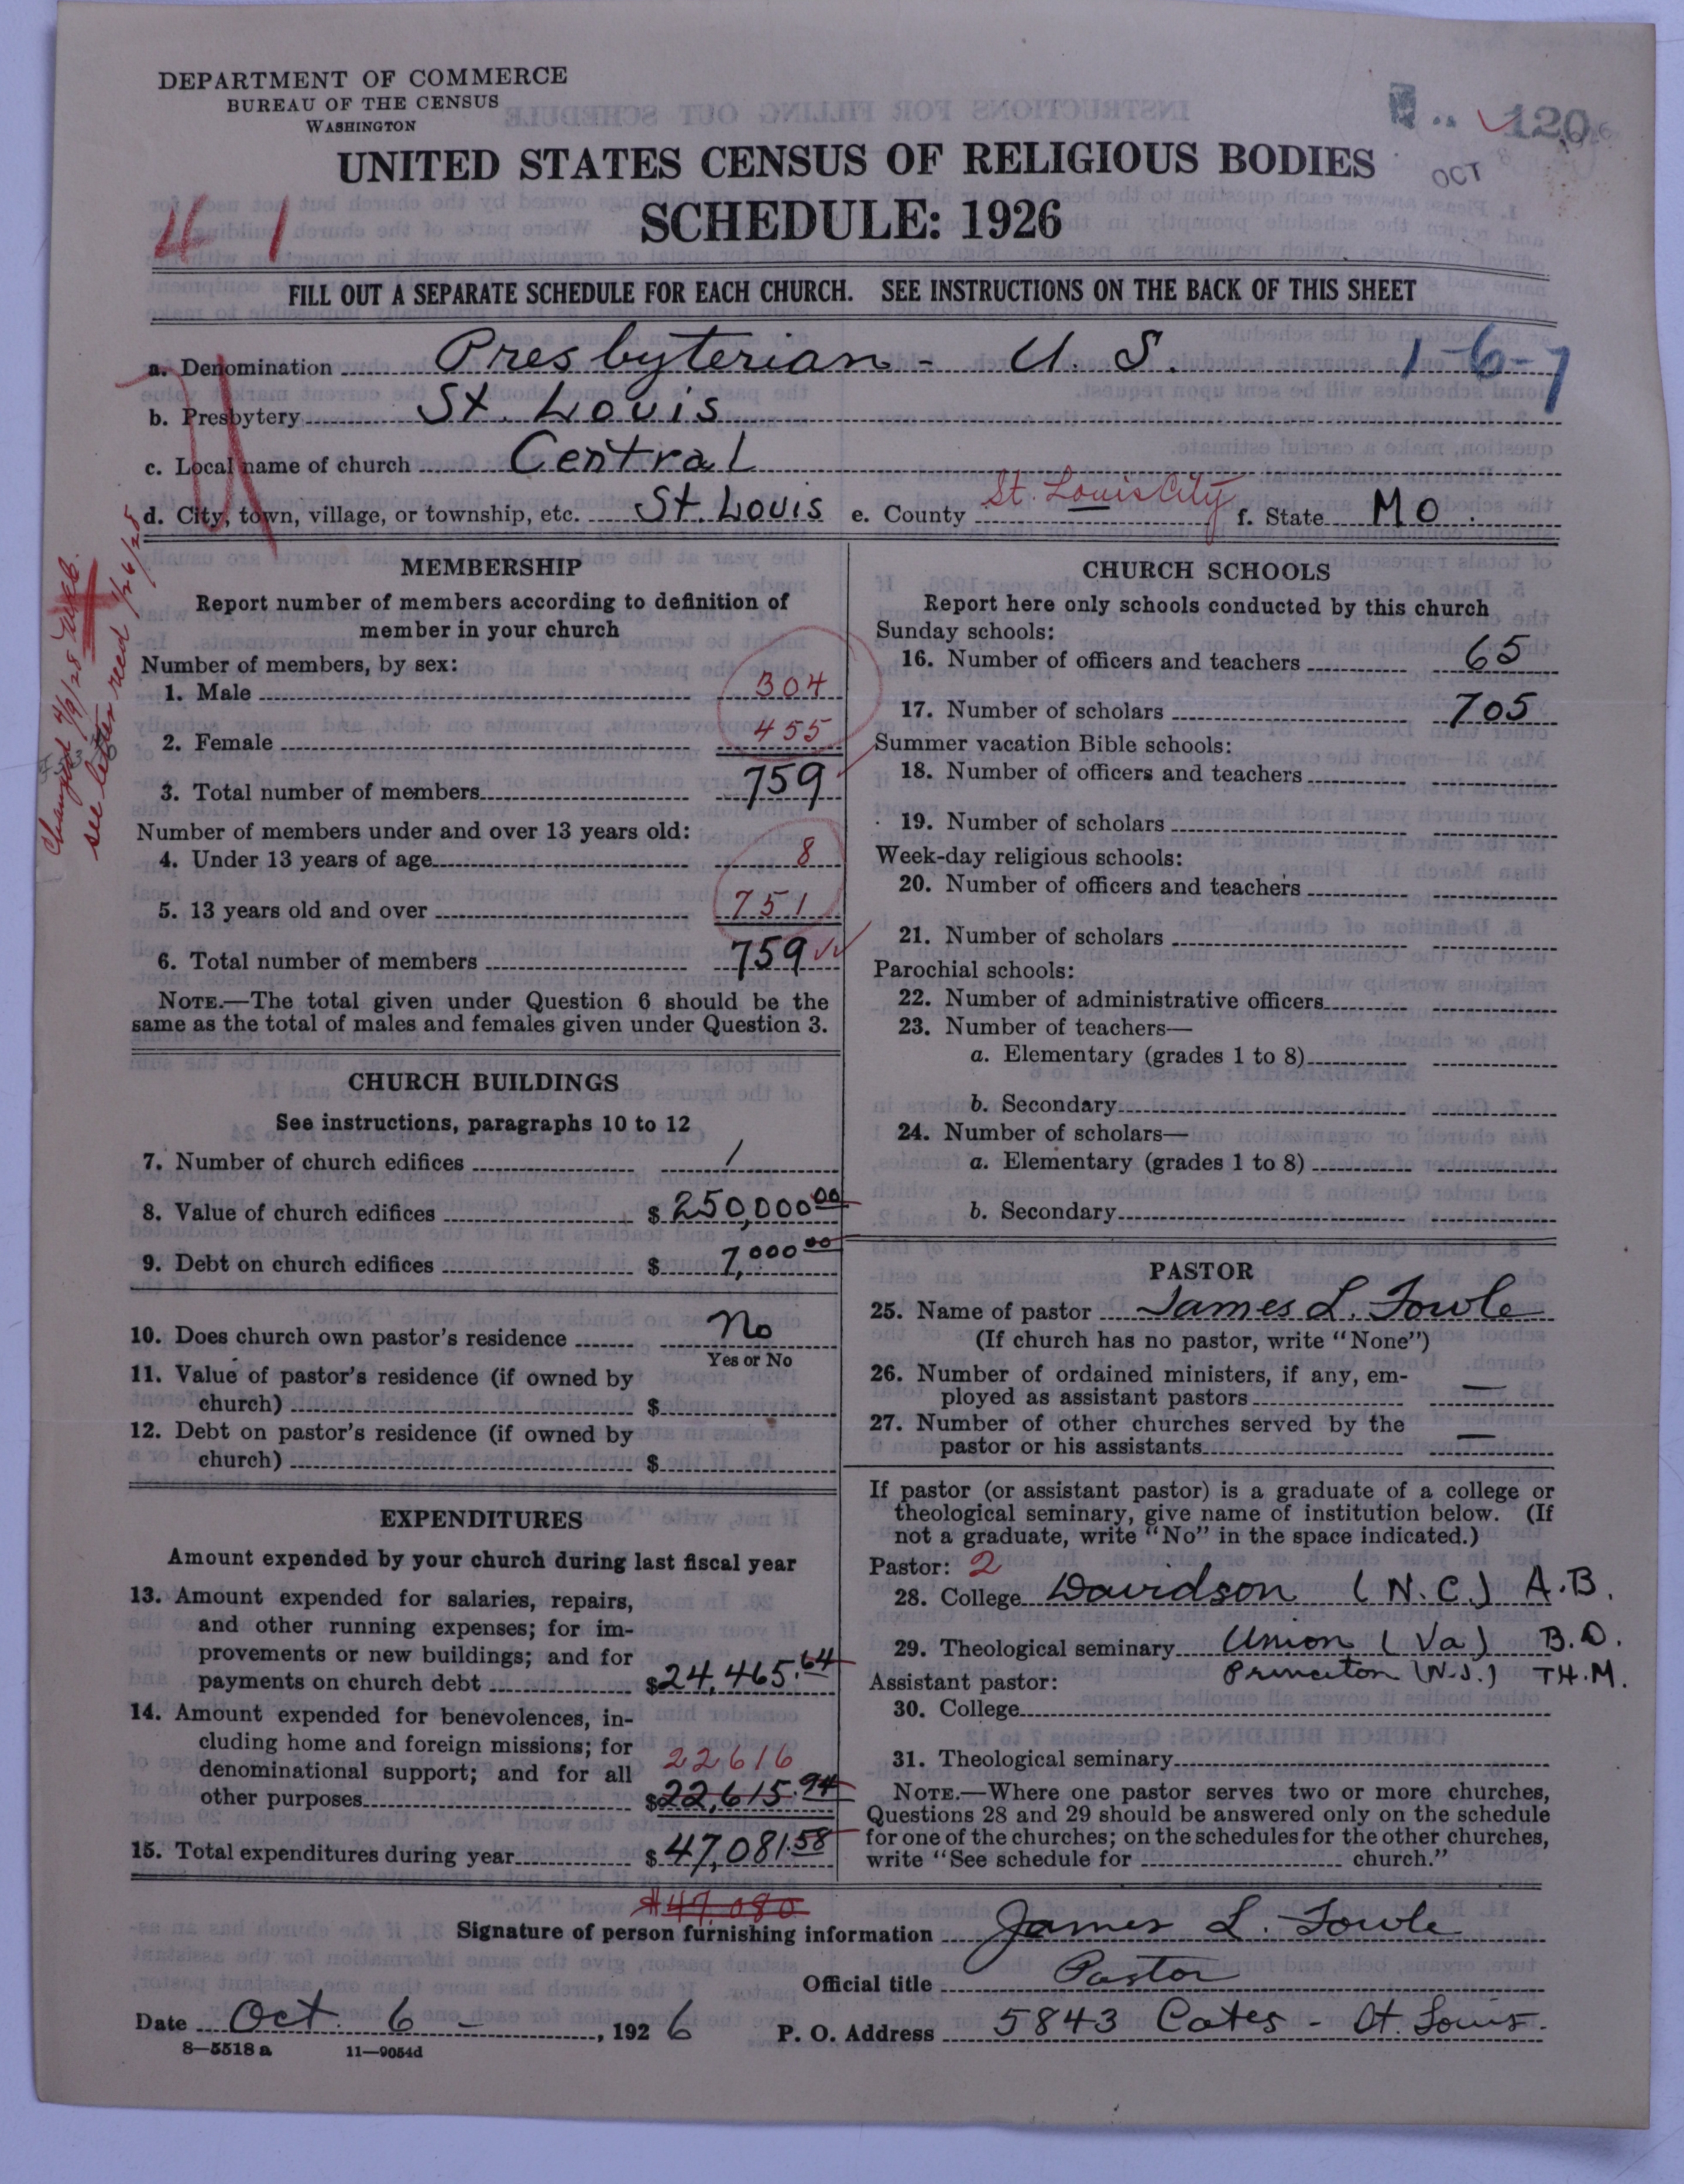 DEPARTMENT OF COMMERCE
BUREAU OF THE CENSUS
WASHINGTON
120
OCT
UNITED STATES CENSUS OF RELIGIOUS BODIES
SCHEDULE: 1926
41
FILL OUT A SEPARATE SCHEDULE FOR EACH CHURCH. SEE INSTRUCTIONS ON THE BACK OF THIS SHEET
a. Denomination Presbyterian - U. S. 1-6-7
b. Presbytery St. Louis
c. Local name of church Central
d. City, town, village, or township, etc. St. Louis e. County St. Louis City f. State MO.
Changed 4/9/28
see letter recd 1/26/28
MEMBERSHIP
Report number of members according to definition of
member in your church
Number of members, by sex:
1. Male 304
2. Female 455
3. Total number of members 759
Number of members under and over 13 years old:
4. Under 13 years of age 8
5. 13 years old and over 751
6. Total number of members 759
NOTE.—The total given under Question 6 should be the
same as the total of males and females given under Question 3.
CHURCH BUILDINGS
See instructions, paragraphs 10 to 12
7. Number of church edifices 1
8. Value of church edifices $ 250,000 00
9. Debt on church edifices $ 7,000 00
10. Does church own pastor's residence No
Yes or No
11. Value of pastor's residence (if owned by
church) $
12. Debt on pastor's residence (if owned by
church) $
EXPENDITURES
Amount expended by your church during last fiscal year
13. Amount expended for salaries, repairs,
and other running expenses; for im-
provements or new buildings; and for
payments on church debt $24,465.64
14. Amount expended for benevolences, in-
cluding home and foreign missions; for
denominational support; and for all 22616
other purposes $22,615.94
15. Total expenditures during year $ 47,081.58
$47,080
CHURCH SCHOOLS
Report here only schools conducted by this church
Sunday schools:
16. Number of officers and teachers 65
17. Number of scholars 705
Summer vacation Bible schools:
18. Number of officers and teachers
19. Number of scholars
Week-day religious schools:
20. Number of officers and teachers
21. Number of scholars
Parochial schools:
22. Number of administrative officers
23. Number of teachers—
a. Elementary (grades 1 to 8)
b. Secondary
24. Number of scholars—
a. Elementary (grades 1 to 8)
b. Secondary
PASTOR
25. Name of pastor James L. Fowle
(If church has no pastor, write "None")
26. Number of ordained ministers, if any, em-
ployed as assistant pastors —
27. Number of other churches served by the
pastor or his assistants —
If pastor (or assistant pastor) is a graduate of a college or
theological seminary, give name of institution below. (If
not a graduate, write "No" in the space indicated.)
Pastor: 2
28. College Davidson (N.C.) A.B.
29. Theological seminary Union (Va) B.D.
Princeton (N.J.) TH.M.
Assistant pastor:
30. College
31. Theological seminary
NOTE.—Where one pastor serves two or more churches,
Questions 28 and 29 should be answered only on the schedule
for one of the churches; on the schedules for the other churches,
write "See schedule for church."
Signature of person furnishing information James L. Fowle
Official title Pastor
Date Oct. 6 - , 1926 P. O. Address 5843 Cates - St. Louis.
8—5518 a 11—9054d